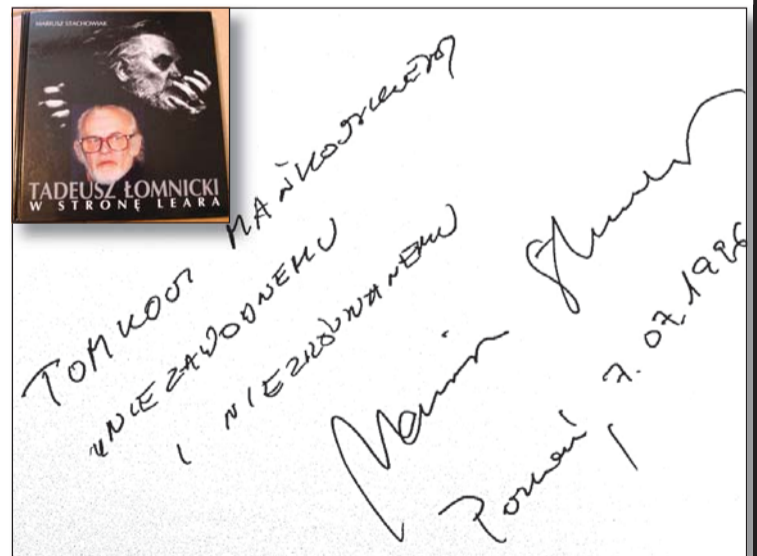 MARIUSZ STACHOWIAK
TADEUSZ ŁOMNICKI
W STRONĘ LEARA
TOMKOWI MAŃKOWSKIEMU
"NIEZAWODNEMU
I NIEZRÓWNANEMU
Mariusz
Poznań 7.07.1996